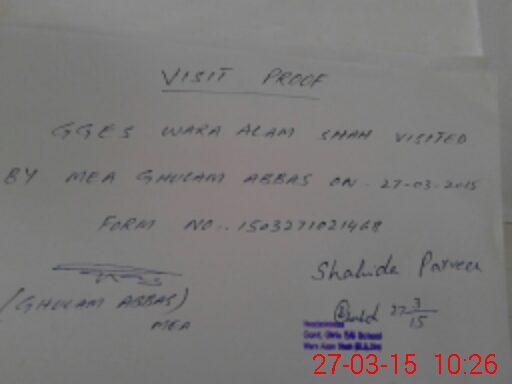 VISIT PROOF
GGES WARA ALAM SHAH VISITED
BY MEA GHULAM ABBAS ON. 27-03-2015
FORM NO.. 1503271021468
Shahida Parveen
(GHULAM ABBAS)
MEA
27 3/15
Headmistress
Govt. Girls E/S School
Wara Alam Shah
27-03-15 10:26